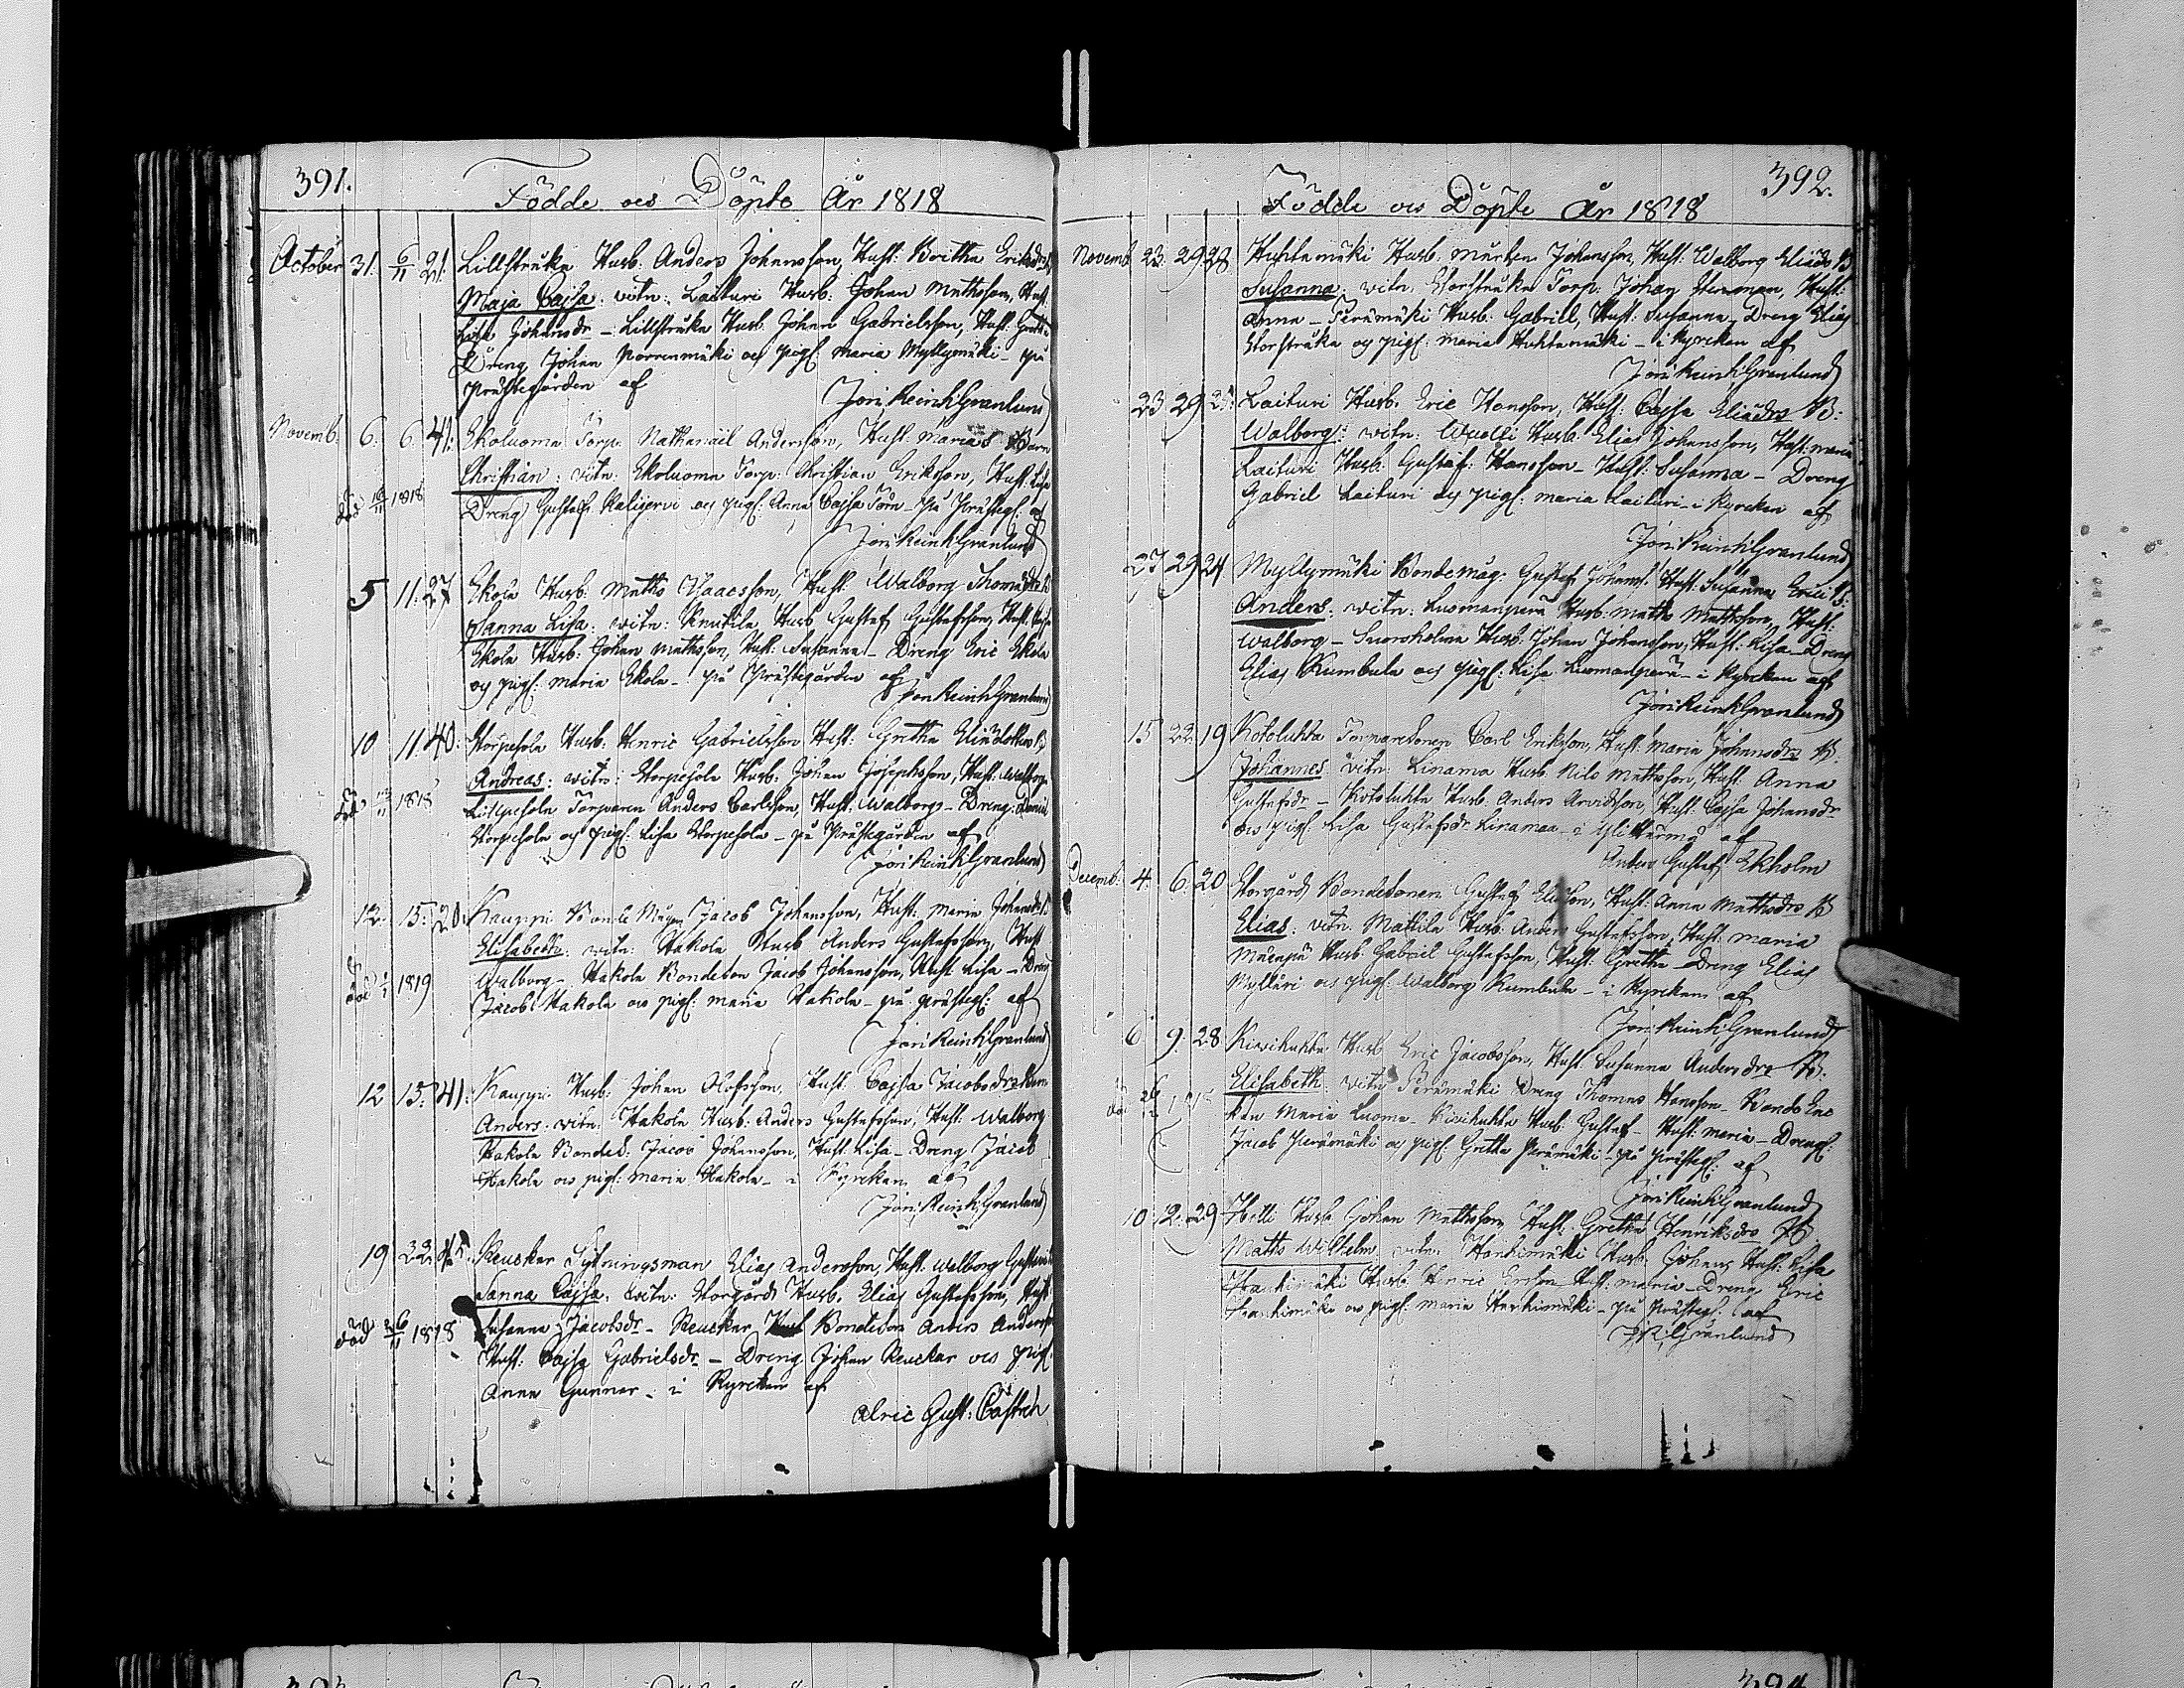 391.
Födde och Döpte År 1818
October 31. 6/11 21. Lillstruka Husb: Anders Johansson, Hust: Britha Eriksdr
Maja Cajsa: vitn: Laituri Husb: Johan Mathsson, Hust:
Lisa Johansdr - Lillstruka Husb: Johan Gabrielsson, Hust: Gretha
Dreng Johan Porrenmäki och pig: Maria Myllymäki - på
Prästegården af
Jon: Reinh: Granlund
Novemb: 6. 6. 41. Ekoluoma Torp: Nathanäel Andersson, Hust: Marias Barn
Christian: vitn: Ekoluoma Torp: Christian Eriksson, Hust: Lisa
död 1818 Dreng Gustaf Kaligervi och pig: Anna Cajsa - på Prästeg: af
Jon: Reinh: Granlund
5 11. 27 Ekola Husb: Matts Isaacsson, Hust: Walborg Thomædr B
Sanna Lisa: vitn: Knutila Husb Gustaf Gustafsson, Hust:
Ekola Husb: Johan Mathsson, Hust: Susanna - Dreng Eric Ekola
och pig: Maria Ekola - på Prästegården af
Jon Reinh Granlund
10 11. 40. Storpesola Husb: Henric Gabrielsson Hust: Gretha Eliædotters B
Andreas: vitn: Storpesola Husb: Johan Josephsson, Hust: Walborg
död 1818 Lillpesola Torparen Anders Carlsson, Hust: Walborg - Dreng: Daniel
Storpesola och pig: Lisa Storpesola - på Prästegården af
Jon: Reinh: Granlund
12. 15. 20. Kauppi Bonde Mågen Jacob Johansson, Hust: Maria Johansdr B
Elisabeth: vitn: Hakola Husb Anders Gustafsson, Hust
död 1819 Walborg - Hakola Bondeson Jacob Johansson, Hust Lisa - Dreng
Jacob Hakola och pig: Maria Hakola - på Prästeg: af
Jon: Reinh: Granlund
12 15. 41. Kauppi Husb: Johan Olofsson, Hust: Cajsa Jacobsdrs Barn
Anders: vitn: Hakola Husb: Anders Gustafsson, Hust: Walborg
Hakola Bondes: Jacob Johansson, Hust: Lisa - Dreng Jacob
Hakola och pig: Maria Hakola - i Kyrckan af
Jon: Reinh: Granlund
19. 22. Reucker Sytningsman Elias Andersson, Hust: Walborg
Sanna Cajsa: vitn: Storgård Husb: Elias Gustafsson, Hust
död 26/11 1818 Susanna Jacobsdr - Reucker Bondeson Anders Andersson
Hust: Cajsa Gabrielsdr - Dreng Johan Reucker och pig:
Anna Gunnar - i Kyrckan af
Alric Gust: Castrén
392.
Födde och Döpte År 1818
Novemb 23. 29. 28 Huhtamäki Husb: Mårten Johansson, Hust: Walborg Eliædr B
Susanna: vitn: Storstruka Torp: Johan, Hust:
Anna - Perämäki Husb: Gabriel, Hust: Susanna - Dreng Elias
Storstruka och pig: Maria Huhtamäki - i Kyrckan af
Jon: Reinh: Granlund
23 29 25. Laituri Husb: Eric Hansson, Hust: Cajsa Eliædrs B:
Walborg: vitn: Wuolli Husb: Elias Johansson, Hust: Maria
Laituri Husb: Gustaf Hansson - Hust: Susanna - Dreng
Gabriel Laituri och pig: Maria Laituri - i Kyrckan af
Jon: Reinh: Granlund
27 29 24 Myllymäki Bondemåg: Gustaf Johanss: Hust: Susanna Erici B:
Anders: vitn: Luomanperä Husb: Matts Mattsson, Hust:
Walborg - Husb: Johan Johansson, Hust: Lisa - Dreng
Elias Rumbula och pig: Lisa Luomanperä - i Kyrckan af
Jon: Reinh: Granlund
15 22. 19 Kotoluhta Torparesonen Carl Eriksson, Hust: Maria Johansdrs B.
Johannes: vitn: Linama Husb: Nils Mattsson, Hust: Anna
Gustafsdr - Kotoluhta Husb: Anders Arvidsson, Hust: Cajsa Johansdr
och pig: Lisa Gustafsdr Linamaa - i af
Anders Gustaf Ekholm
Decemb: 4. 6. 20 Storgård Bondesonen Gustaf Eliæson, Hust: Anna Mathsdrs B
Elias: vitn: Mattila Husb: Anders Gustafsson, Hust: Maria
Husb: Gabriel Gustafsson, Hust: Gretha - Dreng Elias
Mylläri och pig: Walborg Rumbula - i Kyrckan af
Jon: Reinh: Granlund
6 9. 28 Kivihuhta Husb Eric Jacobsson, Hust: Susanna Andersdrs B:
Elisabeth: vitn: Perämäki Dreng Thomas Hansson - Bonde Enc
kan Maria Luoma - Kivihuhta Husb: Gustaf - Hust: Maria - Dreng:
Jacob Perämäki och pig: Gretha Perämäki - på Prästeg: af
Jon: Reinh: Granlund
10. 12. 29 Helli Husb Johan Mathsson, Hust: Gretha Henriksdrs B.
Matts Wilhelm: vitn: Harhimäki Husb: Johans Hust: Lisa
Harhimäki Husb: Henric Ersson Hust: Maria - Dreng Eric
Harhimäki och pig: Maria Harhimäki - på Prästeg: af
J: R: Granlund
394